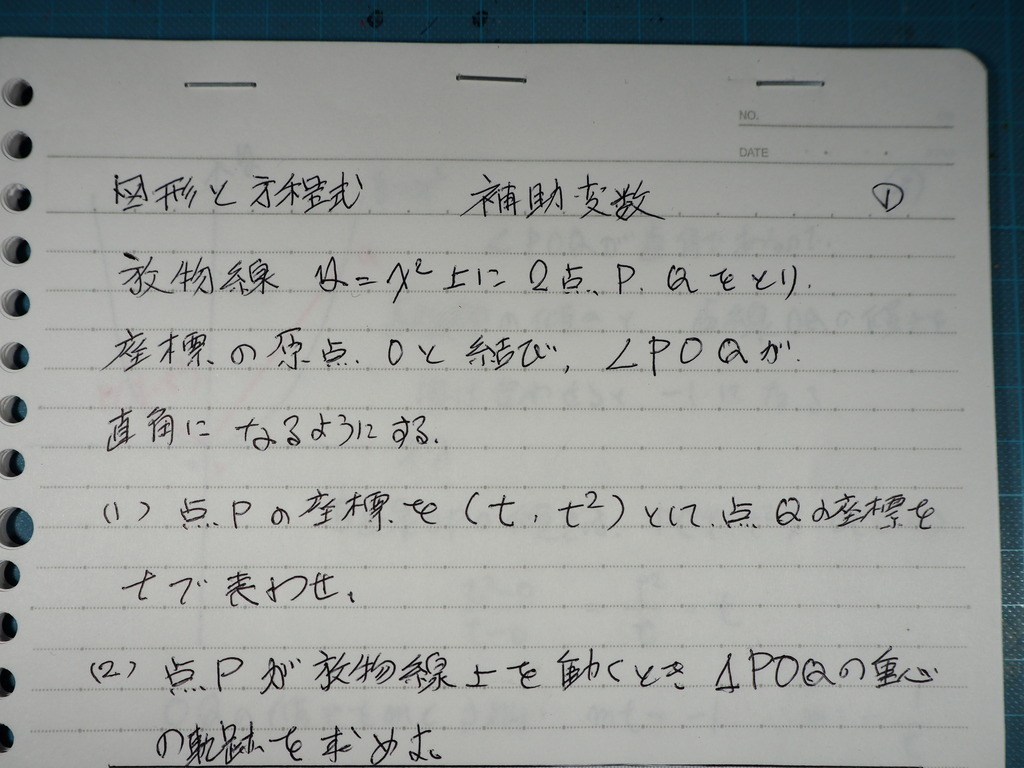 NO.
DATE
図形と方程式 補助変数 ①
放物線 y=x²上に2点P.Qをとり.
座標の原点Oと結び, ∠POQが
直角になるようにする.
(1) 点Pの座標を(t, t²)として点Qの座標を
tで表わせ.
(2) 点Pが放物線上を動くとき △POQの重心
の軌跡を求めよ.